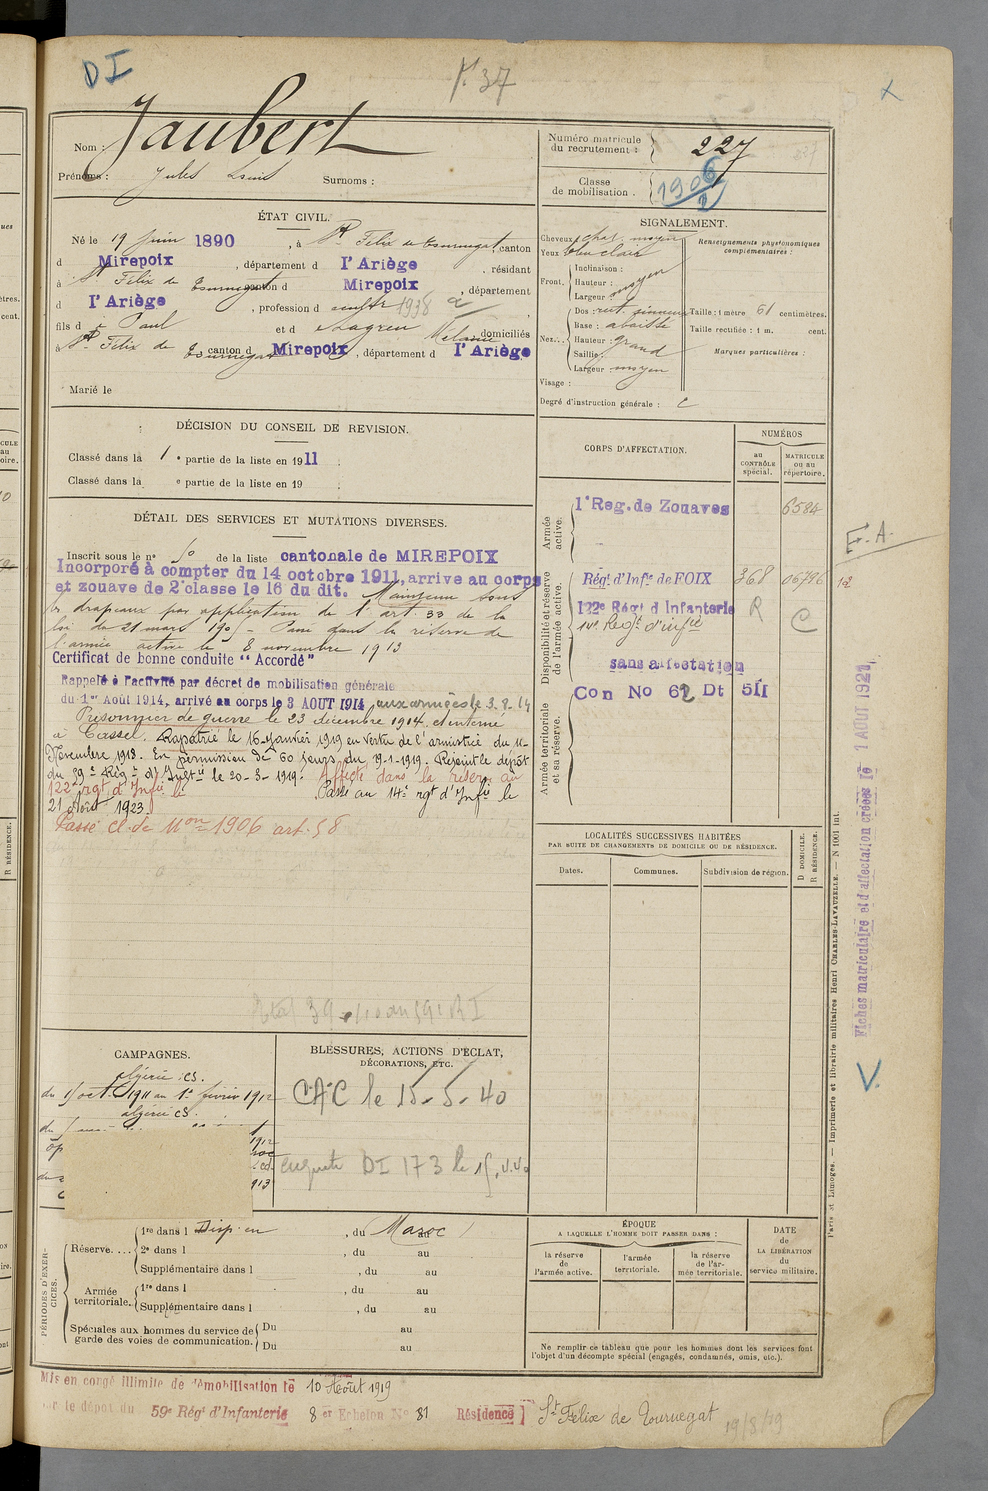 DI
P. 37
X
Nom : Jaubert
Prénoms : Jules Louis Surnoms :
Numéro matricule du recrutement : 227
Classe de mobilisation . 1906
ÉTAT CIVIL.
Né le 19 juin 1890 , à St Felix de Tournegat, canton
d Mirepoix , département d l'Ariège , résidant
à St Felix de Tournegat canton d Mirepoix , département
d l'Ariège , profession d 1938
fils d e Paul et d Mélanie , domiciliés
à St Felix de Tournegat canton d Mirepoix , département d l'Ariège
Marié le
SIGNALEMENT.
Cheveux chat. moyen
Yeux bleu clair
Front. Inclinaison :
Hauteur : moyen
Largeur
Nez... Dos : rect. sinueux
Base : abaissé
Hauteur : grand
Saillie :
Largeur moyen
Visage :
Degré d'instruction générale : 2
Renseignements physionomiques complémentaires :
Taille : 1 mètre 61 centimètres.
Taille rectifiée : 1 m. cent.
Marques particulières :
DÉCISION DU CONSEIL DE REVISION.
Classé dans la 1 e partie de la liste en 1911
Classé dans la e partie de la liste en 19
DÉTAIL DES SERVICES ET MUTATIONS DIVERSES.
Inscrit sous le n° 50 de la liste cantonale de MIREPOIX
Incorporé à compter du 14 octobre 1911, arrive au corps
et zouave de 2e classe le 16 du dit. Maintenu sous
les drapeaux par application de l'art. 33 de la
loi du 21 mars 190 - Passé dans la réserve de
l'armée active le 8 novembre 1913
Certificat de bonne conduite "Accordé"
Rappelé à l'activité par décret de mobilisation générale
du 1er Août 1914, arrivé au corps le 3 AOUT 1914 aux armées le 3.8.14
Prisonnier de guerre le 23 décembre 1914 et interné
à Cassel. Rapatrié le 16 Janvier 1919 en vertu de l'armistice du 11
Novembre 1918. En permission de 60 jours du 19-1-1919. Rejoint le dépôt
du 59e Rég.t d'Inf.ie le 20-3-1919. Affecté dans la réserve au
122e rgt d'Inf.ie le Passé au 14e rgt d'Inf.ie le
21 Août 1923
Passé cl. de Mon 1906 art. 58
CORPS D'AFFECTATION.
NUMÉROS
au CONTRÔLE spécial.
MATRICULE ou au répertoire.
Armée active.
1er Reg. de Zouaves 6584
Disponibilité et réserve de l'armée active.
Régt d'Infie de FOIX 368 06796
122e Régt d Infanterie R C
14e Regt d'Infie
sans affectation
Armée territoriale et sa réserve.
Con No 62 Dt 5II
E. A.
12
LOCALITÉS SUCCESSIVES HABITÉES
PAR SUITE DE CHANGEMENTS DE DOMICILE OU DE RÉSIDENCE.
Dates.
Communes.
Subdivision de région.
D DOMICILE.
R RÉSIDENCE.
Fiches matriculaire et d'affectation créées le 1 AOUT 1921
V.
Paris et Limoges. — Imprimerie et librairie militaires Henri CHARLES-LAVAUZELLE. — N 1001 int.
CAMPAGNES.
algérie CS.
du 15 oct. 1911 au 1er février 1912
algérie CS.
1912
1913
BLESSURES, ACTIONS D'ÉCLAT, DÉCORATIONS, ETC.
CAC le 15-5-40
enquete DI 173 le
PÉRIODES D'EXERCICES.
Réserve.... 1re dans l Disp. en , du Maroc au
2e dans l , du au
Supplémentaire dans l , du au
Armée territoriale. 1re dans l , du au
Supplémentaire dans l , du au
Spéciales aux hommes du service de garde des voies de communication. Du au
Du au
ÉPOQUE
A LAQUELLE L'HOMME DOIT PASSER DANS :
la réserve de l'armée active.
l'armée territoriale.
la réserve de l'armée territoriale.
DATE de LA LIBÉRATION du service militaire.
Ne remplir ce tableau que pour les hommes dont les services font
l'objet d'un décompte spécial (engagés, condamnés, omis, etc.).
Mis en congé illimité de démobilisation le 10 Août 1919
par le dépôt du 59e Régt d'Infanterie 8 er Echelon No 81 Résidence St Félix de Tournegat
19/8/19